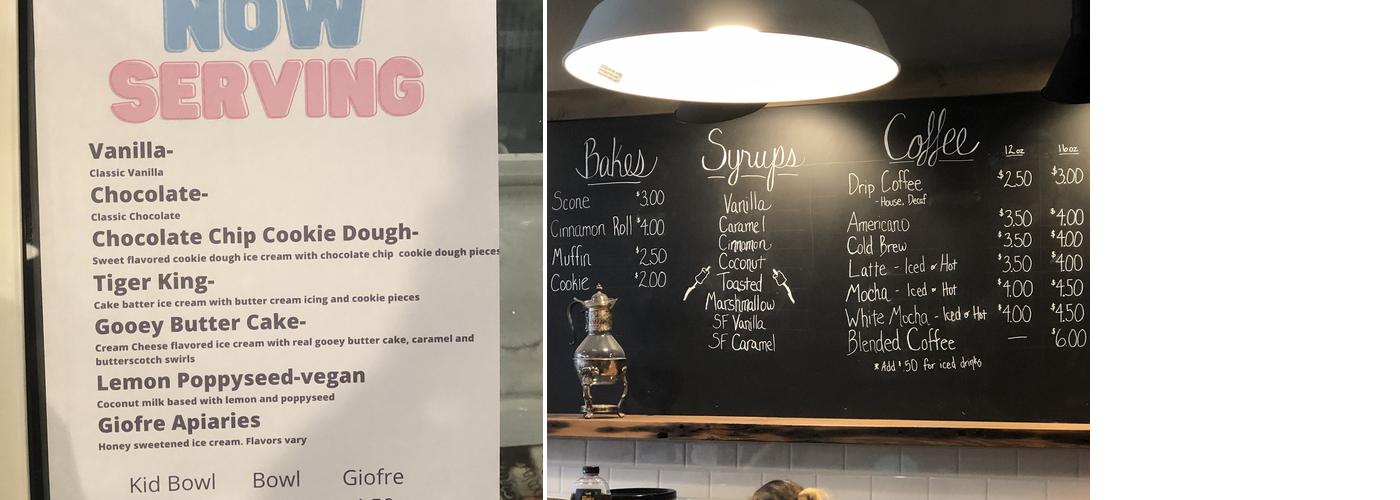 NOW
SERVING
Vanilla-
Classic Vanilla
Chocolate-
Classic Chocolate
Chocolate Chip Cookie Dough-
Sweet flavored cookie dough ice cream with chocolate chip cookie dough pieces
Tiger King-
Cake batter ice cream with butter cream icing and cookie pieces
Gooey Butter Cake-
Cream Cheese flavored ice cream with real gooey butter cake, caramel and
butterscotch swirls
Lemon Poppyseed-vegan
Coconut milk based with lemon and poppyseed
Giofre Apiaries
Honey sweetened ice cream. Flavors vary
Kid Bowl Bowl Giofre
Bakes
Scone $3.00
Cinnamon Roll $4.00
Muffin $2.50
Cookie $2.00
Syrups
Vanilla
Caramel
Cinnamon
Coconut
Toasted
Marshmallow
SF Vanilla
SF Caramel
Coffee 12oz 16oz
Drip Coffee $2.50 $3.00
- House, Decaf
Americano $3.50 $4.00
Cold Brew $3.50 $4.00
Latte - Iced or Hot $3.50 $4.00
Mocha - Iced or Hot $4.00 $4.50
White Mocha - Iced or Hot $4.00 $4.50
Blended Coffee — $6.00
*Add $.50 for iced drinks